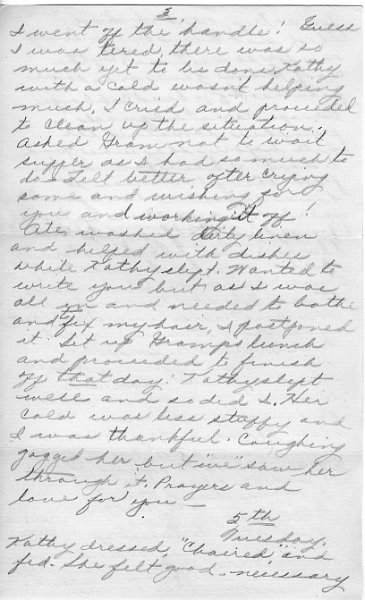 3
I went off the handle! Guess
I was tered, there was so
much yet to be done. Kathy
with a cold wasn't helping
much. I cried and proceeded
to clean up the situation.
Asked Gram not to wait
supper as I had so much to
do. Felt better after crying
some and wishing for
you and working it off!
Ate, washed dirty linen
and helped with dishes
while Kathy slept. Wanted to
write you but as I was
all in and needed to bathe
and fix my hair, I postponed
it. Set up Gramps lunch
and proceeded to finish
off that day. Kathy slept
well and so did I. Her
cold was less stuffy and
I was thankful. Coughing
gagged her but "we" saw her
through it. Prayers and
love for you —
5th
Tuesday.
Kathy dressed, "chaired" and
fed. She felt good - necessary